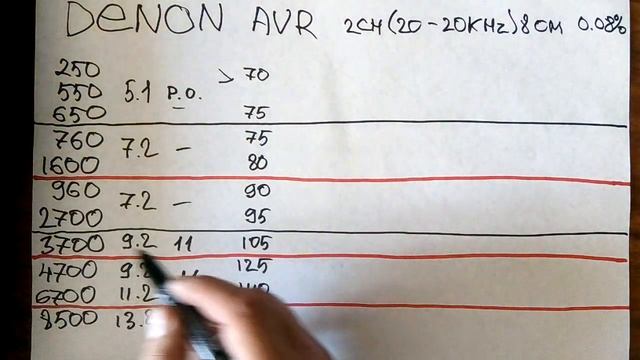 DENON AVR 2CH(20-20KHz)8OM 0.08%
250
550 5.1 P.O. > 70
650 75
760 7.2 - 75
1600 80
960 7.2 - 90
2700 95
3700 9.2 11 105
4700 125
6700 11.2
8500